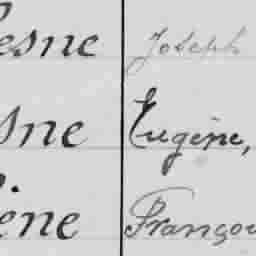 esne Joseph
sne Eugène,
ène Françoi